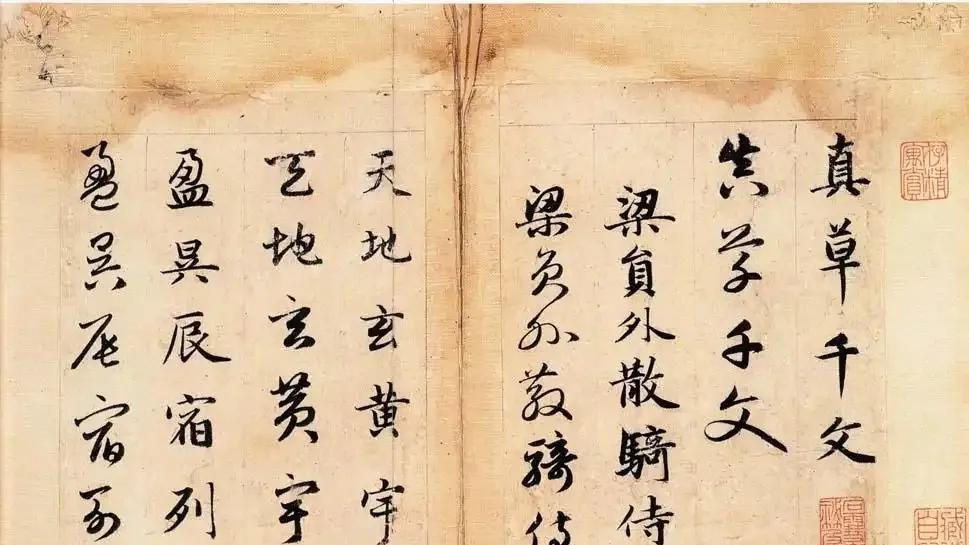 真草千文
真草千文
梁員外散騎侍
梁員外散騎侍
天地玄黄宇
天地玄黄宇
盈昃辰宿列
盈昃辰宿列